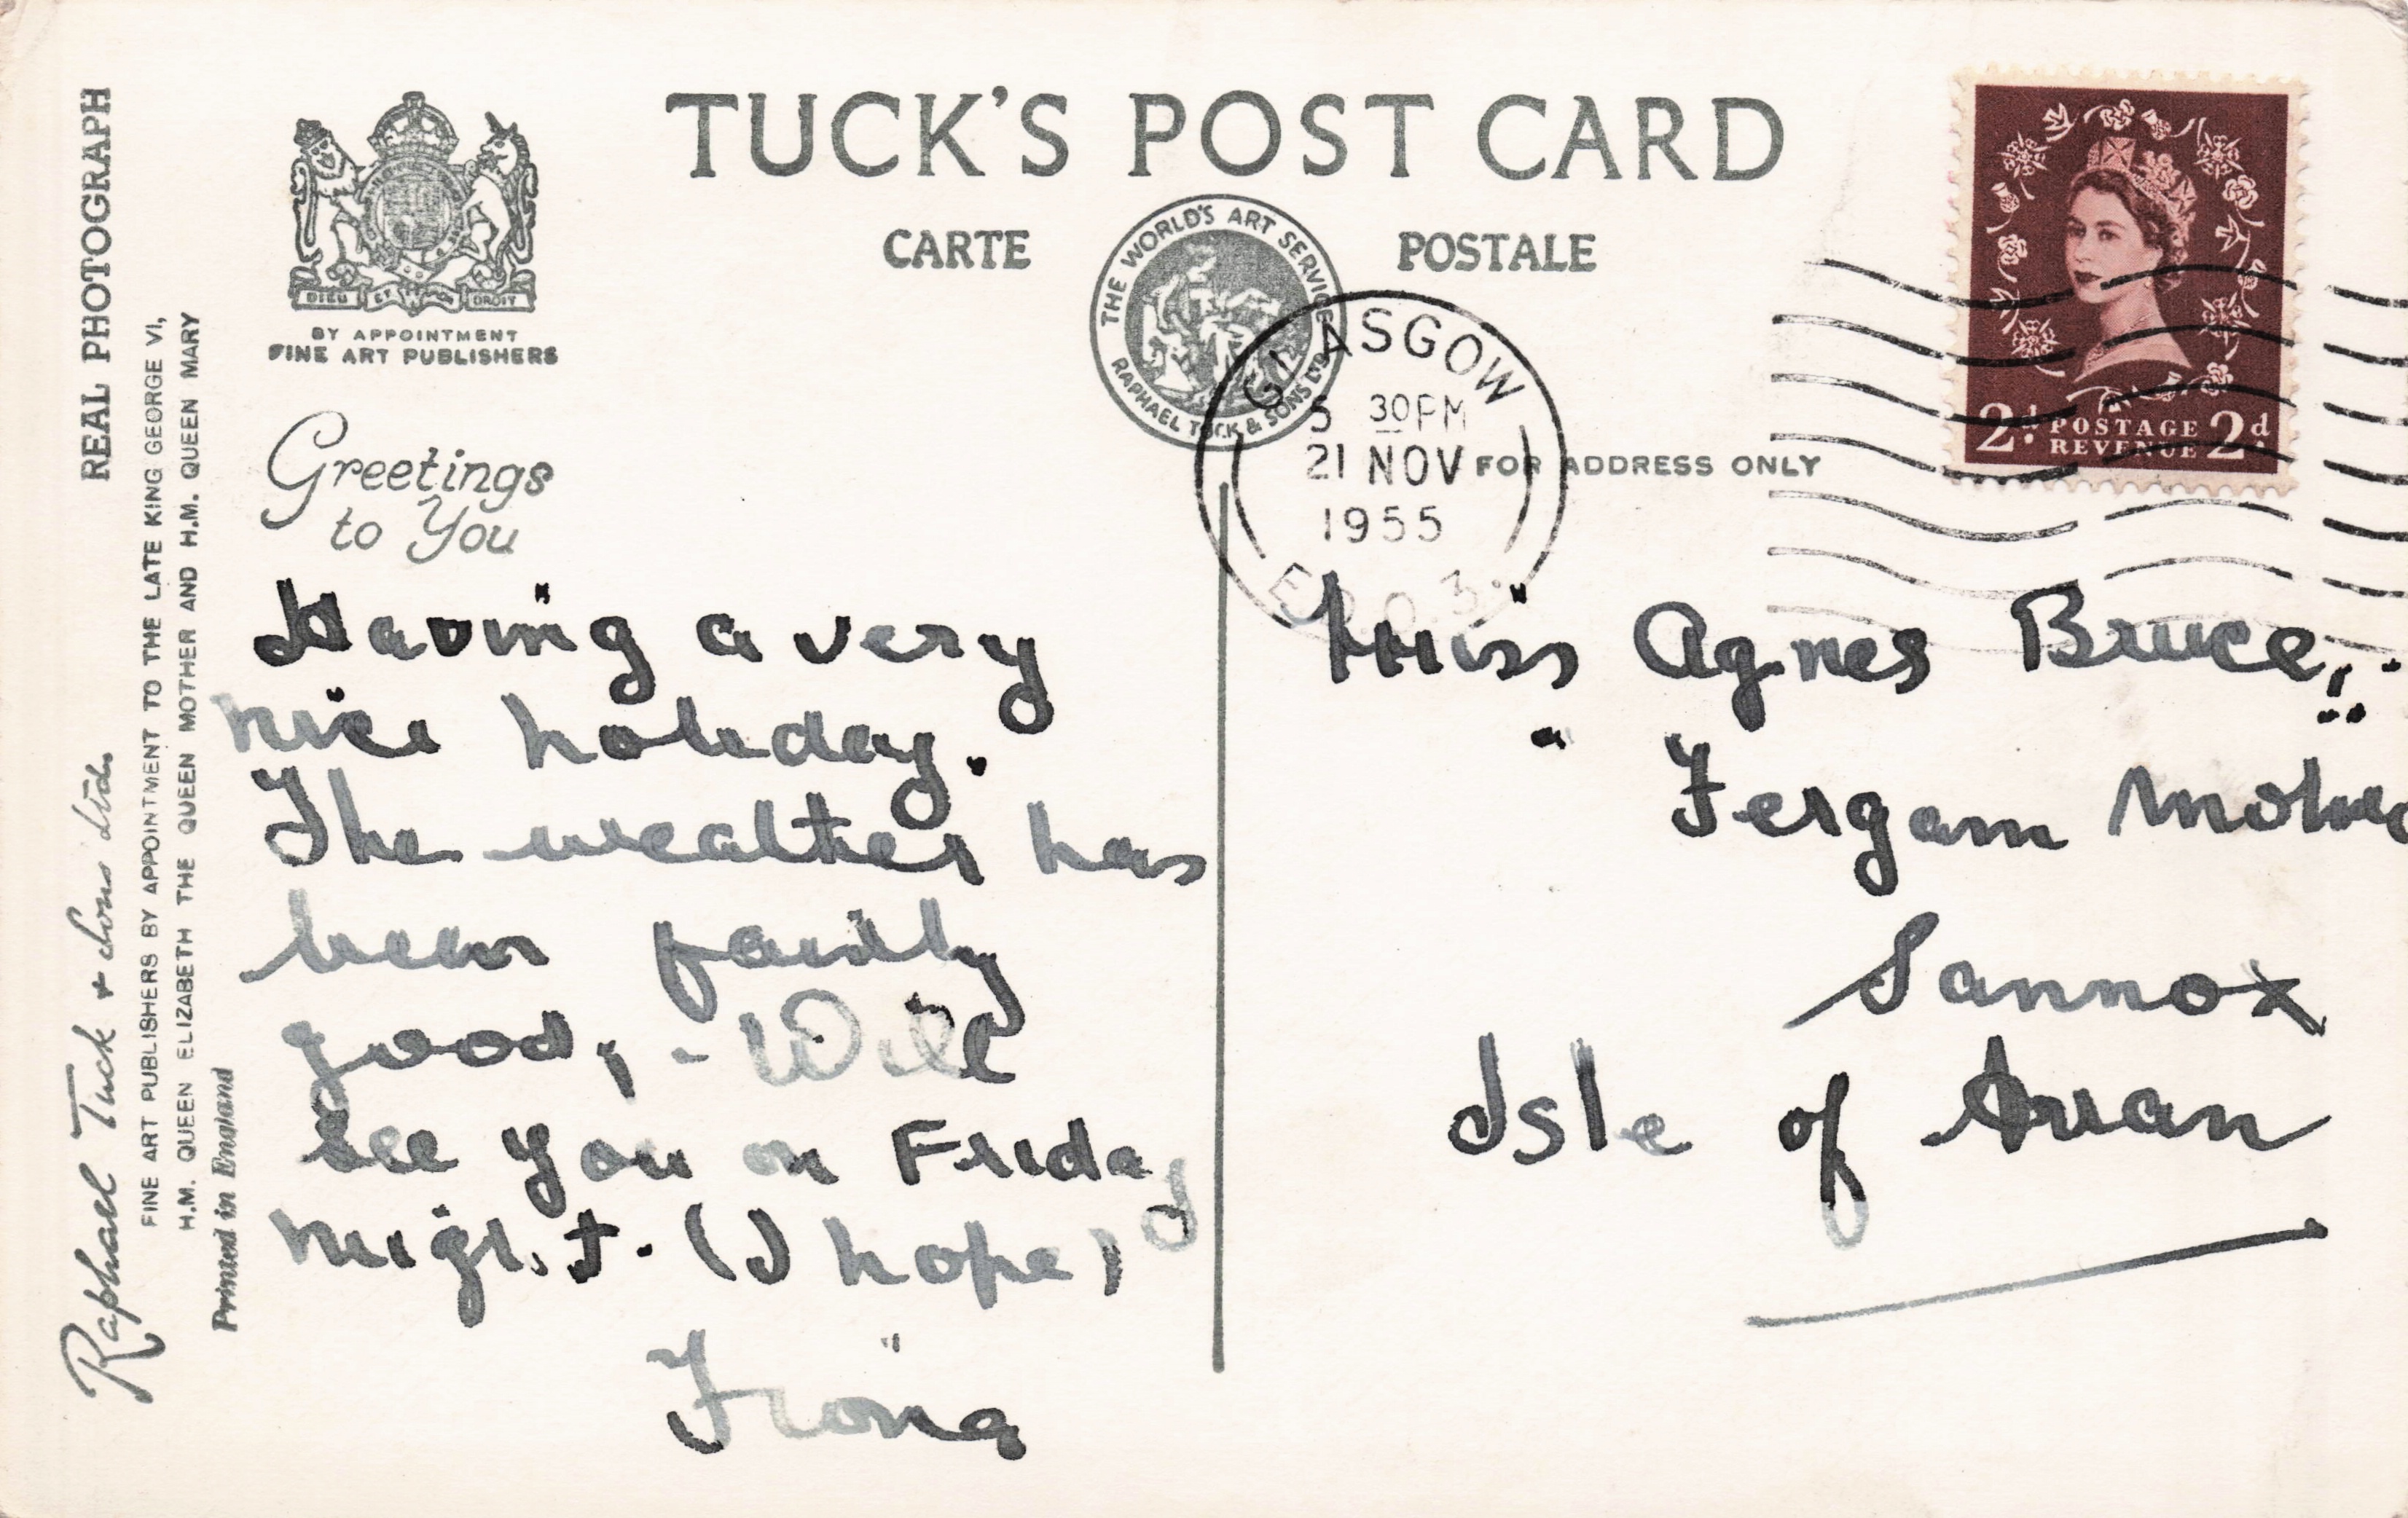 TUCK'S POST CARD
CARTE POSTALE
THE WORLD'S ART SERVICE
RAPHAEL TUCK & SONS LTD
DIEU ET MON DROIT
BY APPOINTMENT
FINE ART PUBLISHERS
REAL PHOTOGRAPH
Raphael Tuck & Sons Ltd.
FINE ART PUBLISHERS BY APPOINTMENT TO THE LATE KING GEORGE VI,
H.M. QUEEN ELIZABETH THE QUEEN MOTHER AND H.M. QUEEN MARY
Printed in England
Greetings
to You
Having a very
nice holiday.
The weather has
been fairly
good, - Will
see you on Friday
night. (I hope)
Fiona
GLASGOW
5 30PM
21 NOV
1955
FOR ADDRESS ONLY
2d POSTAGE 2d
REVENUE
Miss Agnes Bruce,
" Fergam
Sannox
Isle of Arran